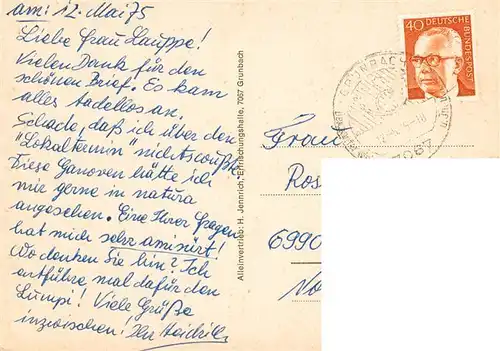 am: 12. Mai 75
Liebe Frau Lauppe!
Vielen Dank für den
schönen Brief. Es kam
alles tadellos an.
Schade, daß ich über den
"Lokaltermin" nichts wußte.
Diese Ganoven hätte ich
mir gerne in natura
angesehen. Eine Ihrer Fragen
hat mich sehr amüsiert!
Wo denken Sie hin? Ich
entführe mal dafür den
Lumpi! Viele Grüße
inzwischen! Ihr
Alleinvertrieb: H. Jennrich, Erfrischungshalle, 7067 Grunbach
40 DEUTSCHE BUNDESPOST
GRUNBACH
7067
Ros
6990